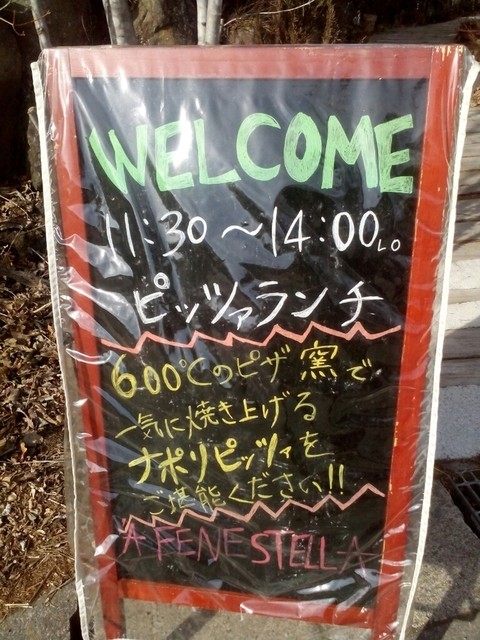 WELCOME
11:30～14:00LO
ピッツァランチ
600℃のピザ窯で
一気に焼き上げる
ナポリピッツァを
ご堪能ください!!
'A FENESTELLA